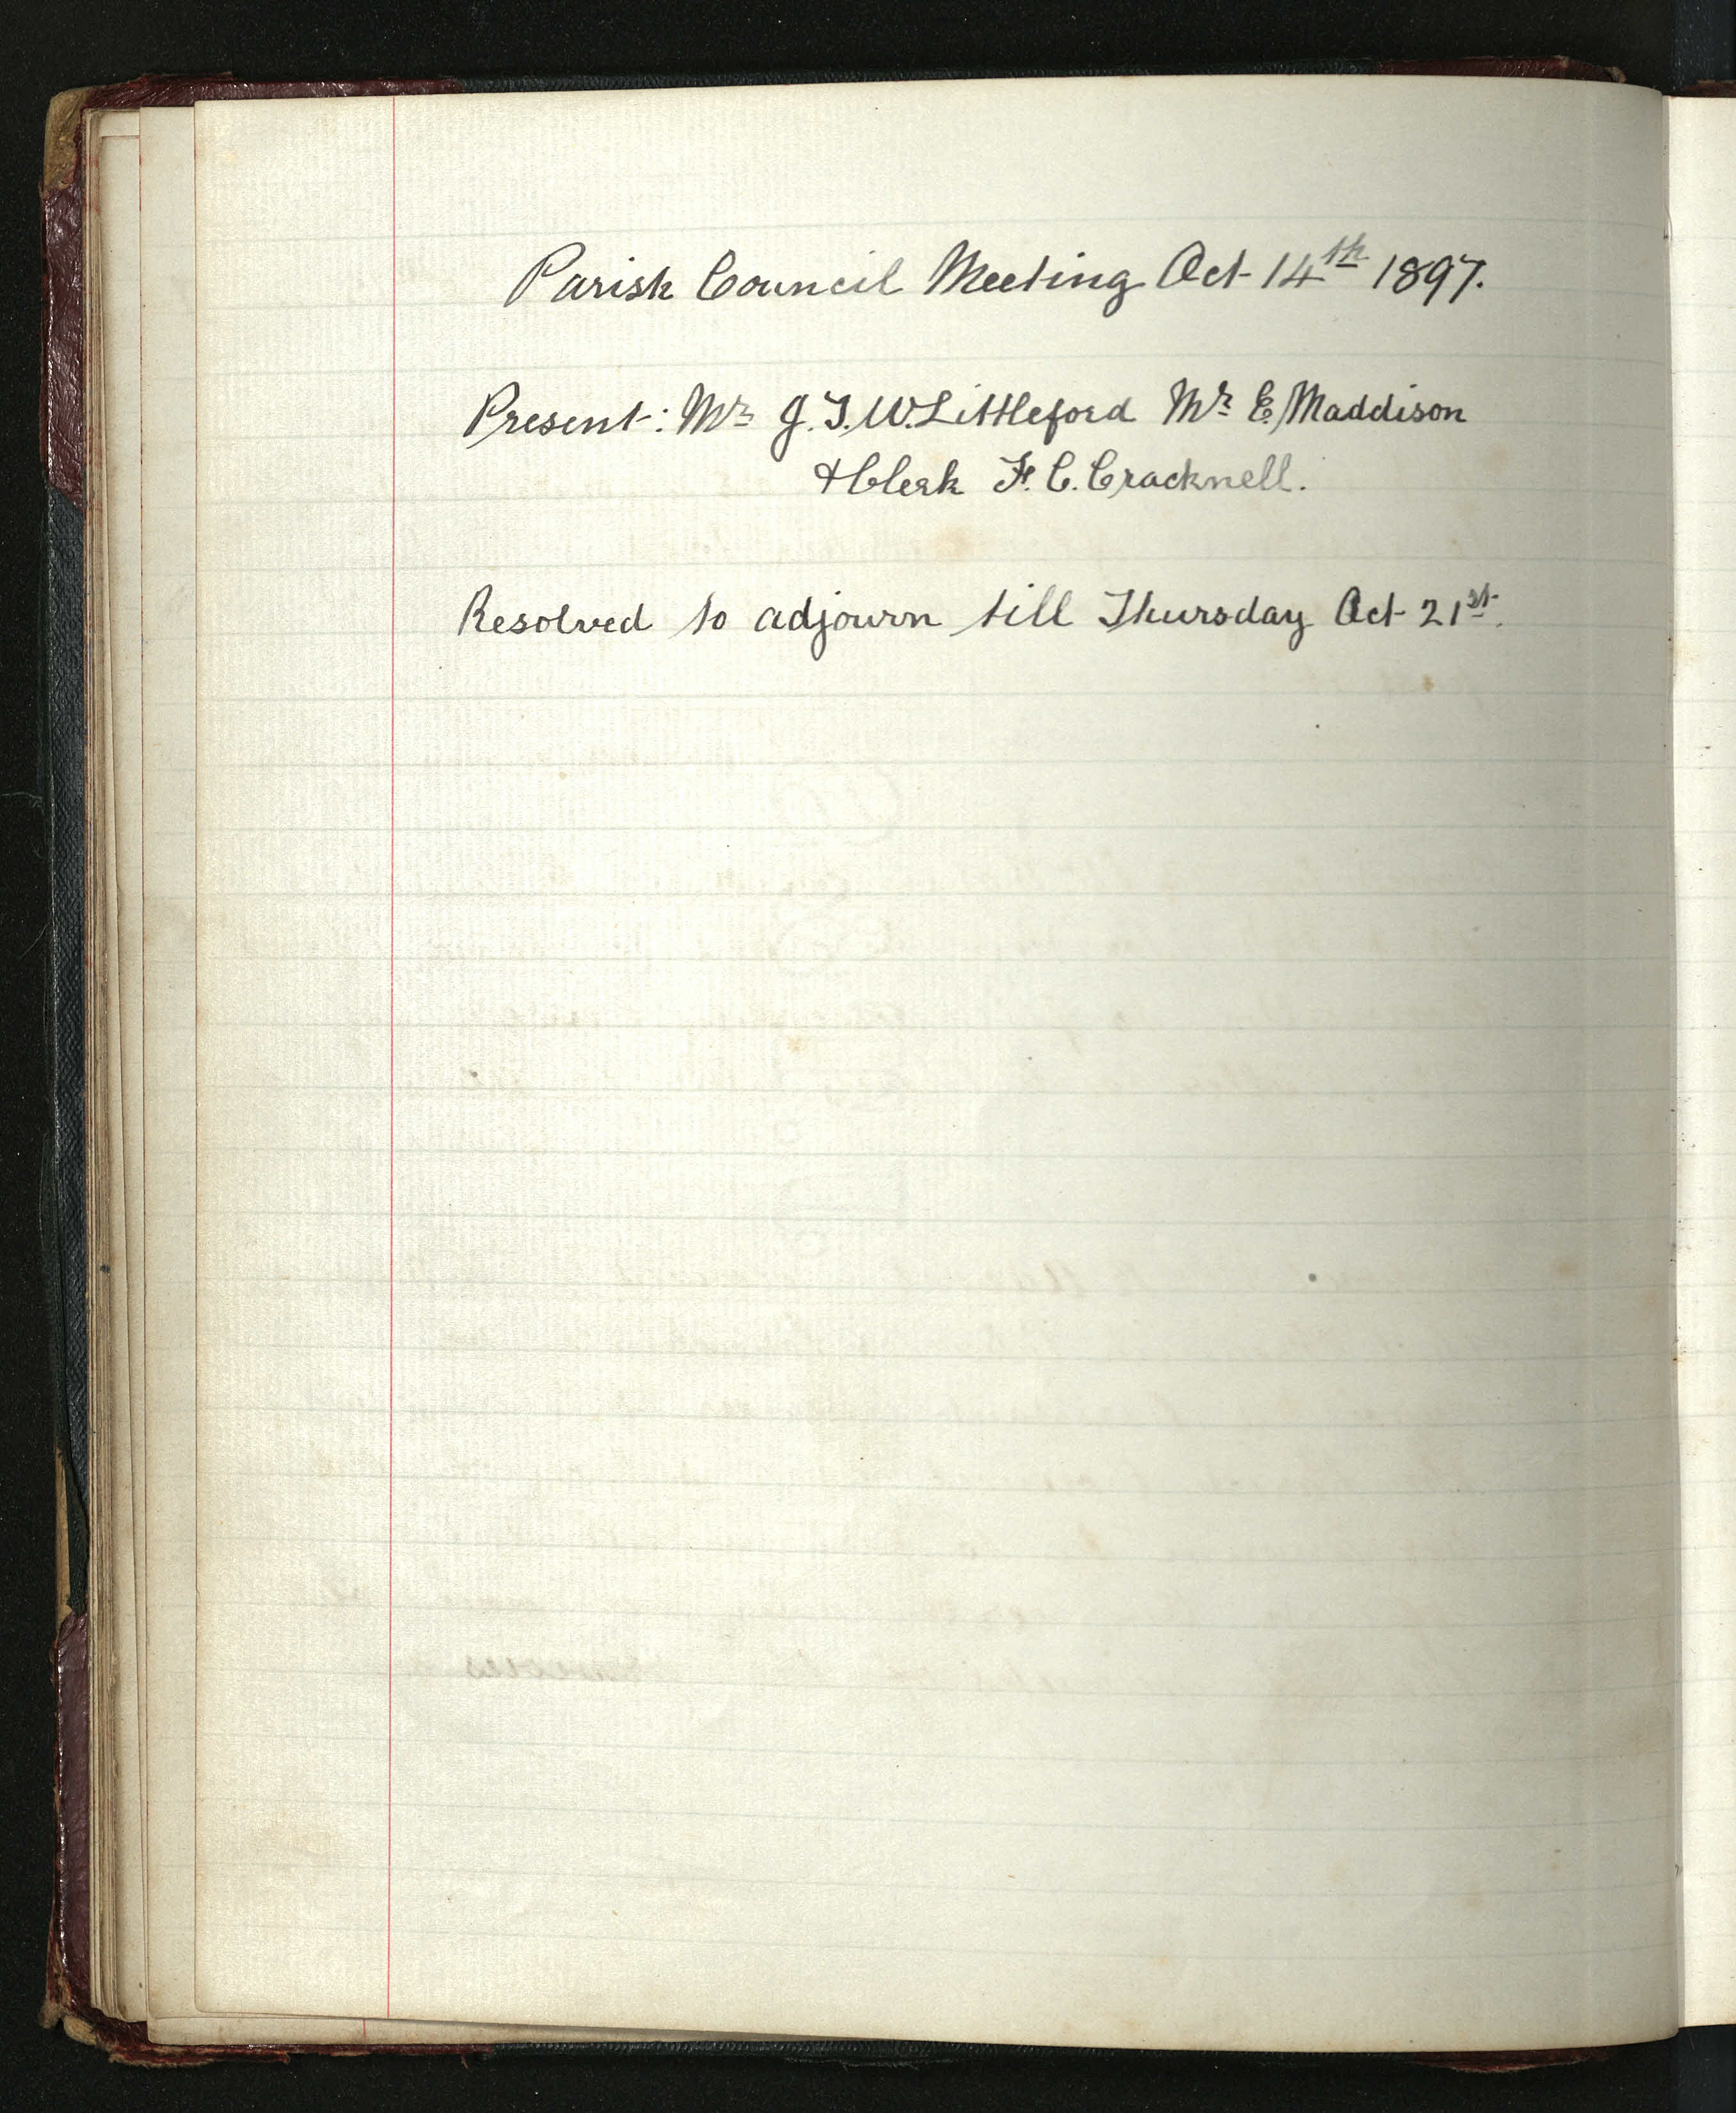 Parish Council Meeting Oct 14th 1897.
Present: Mr J. T. W. Littleford Mr E. Maddison
& Clerk F. C. Cracknell.
Resolved to adjourn till Thursday Oct 21st.